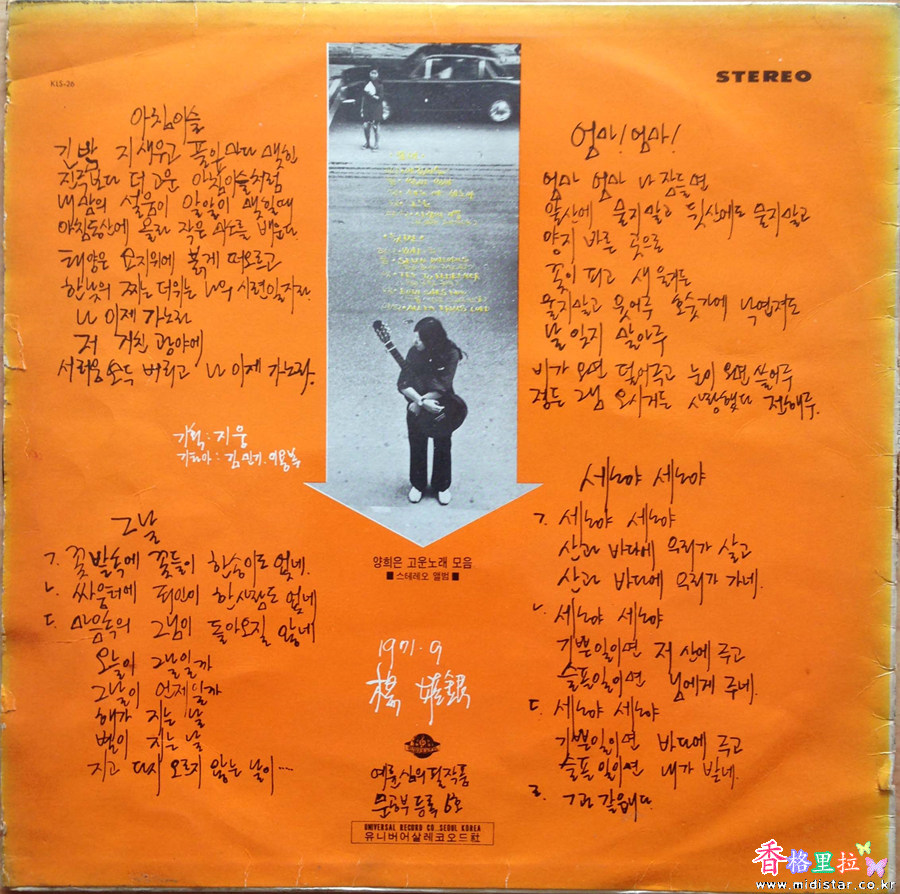 KLS-26
STEREO
아침이슬
긴밤 지새우고 풀잎마다 맺힌
진주보다 더 고운 아침이슬처럼
내 맘의 설움이 알알이 맺힐때
아침동산에 올라 작은 미소를 배운다.
태양은 묘지위에 붉게 떠오르고
한낮의 찌는 더위는 나의 시련일지라
나 이제 가노라
저 거친 광야에
서러움 모두 버리고 나 이제 가노라.
기획 : 지웅
기타아 : 김민기. 이용복
그날
ㄱ. 꽃밭속에 꽃들이 한송이도 없네.
ㄴ. 싸움터에 죄인이 한사람도 없네
ㄷ. 마음속의 그님이 돌아오질 않네
오늘이 그날일까
그날이 언제일까
해가 지는 날
별이 지는 날
지고 다시 오르지 않는 날이…
양희은 고운노래 모음
■ 스테레오 앨범 ■
1971. 9
楊姬銀
예륜심의필작품
문공부등록 5호
UNIVERSAL RECORD CO., SEOUL KOREA
유니버어살레코오드社
엄마! 엄마!
엄마 엄마 나 잠들면
앞산에 묻지말고 뒷산에도 묻지말고
양지 바른 곳으로
꽃이 피고 새 울거든
울지말고 웃어주 호숫가에 낙엽져도
날 잊지 말아주
비가 오면 덮어주고 눈이 오면 쓸어주
정든 그님 오시거든 사랑했다 전해주.
세노야 세노야
ㄱ. 세노야 세노야
산과 바다에 우리가 살고
산과 바다에 우리가 가네.
ㄴ. 세노야 세노야
기쁜일이면 저 산에 주고
슬픈일이면 님에게 주네.
ㄷ. 세노야 세노야
기쁜일이면 바다에 주고
슬픈일이면 내가 받네.
ㄹ. ㄱ과 같읍니다.
香格里拉
www.midistar.co.kr